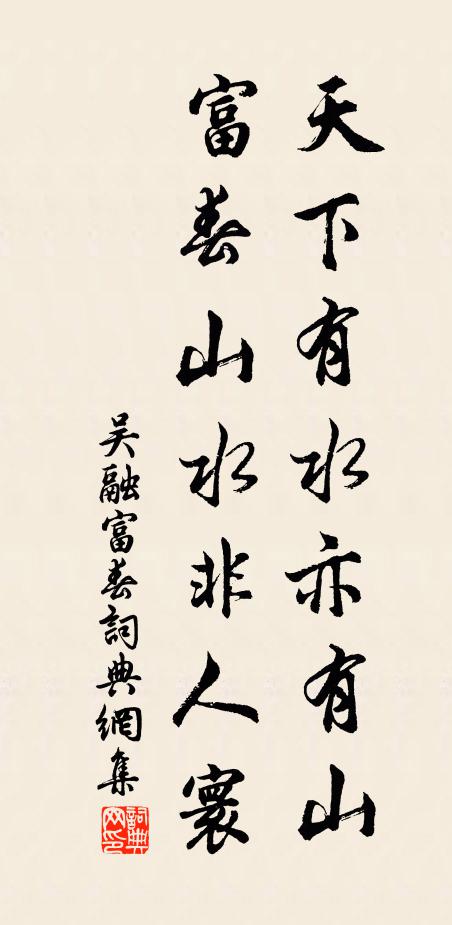 天下有水亦有山
富春山水非人寰
吴融富春詞典網集
詞典网印